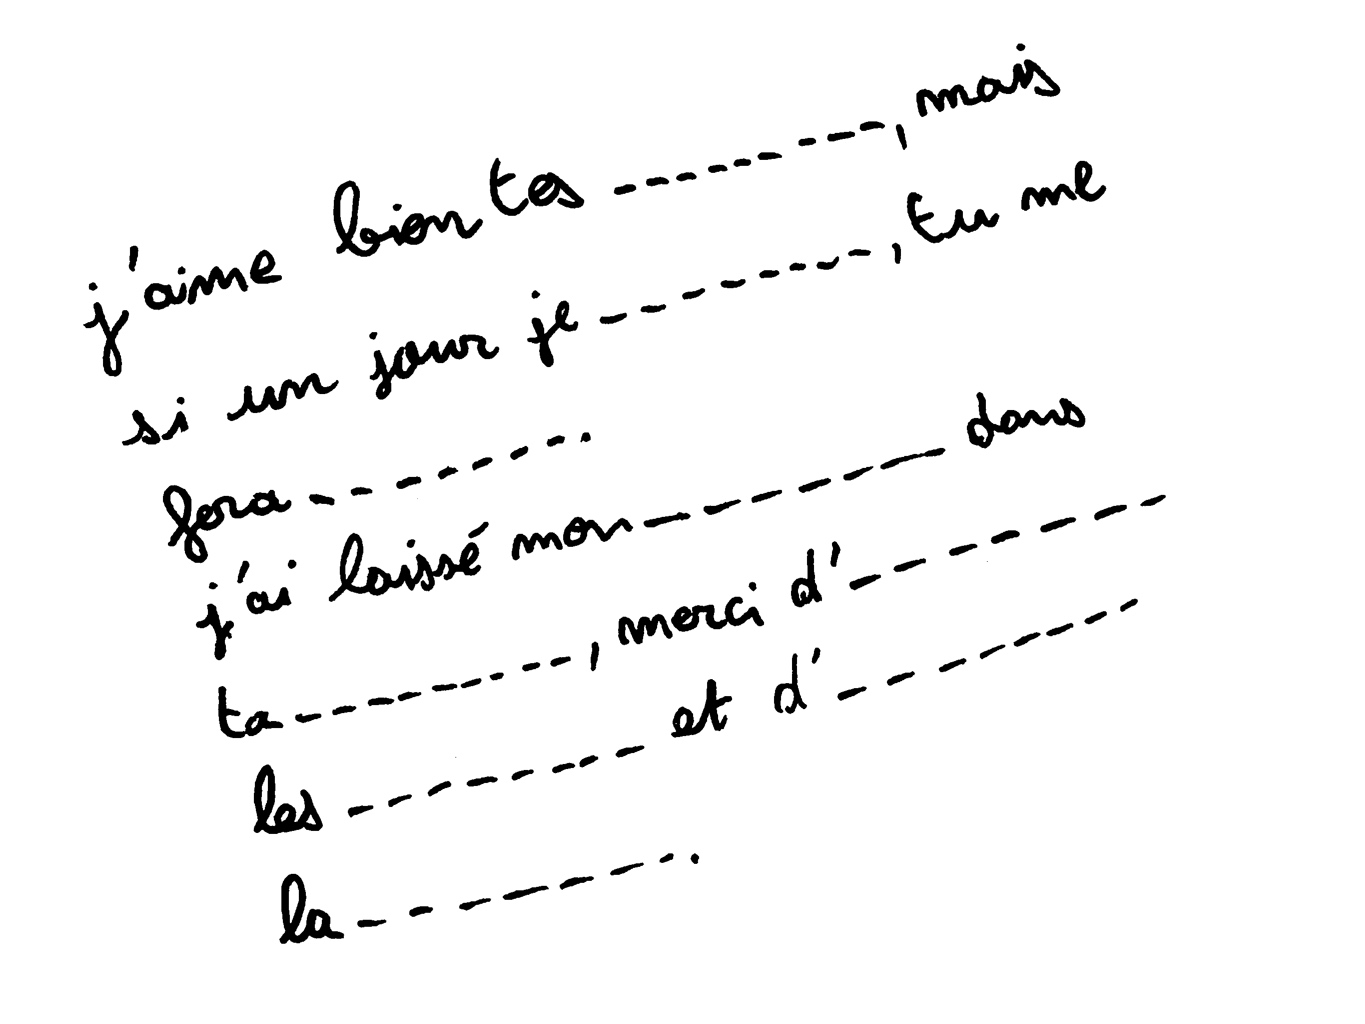 j'aime bien tes ----------, mais
si un jour je ----------, tu me
fera ----------.
j'ai laissé mon ---------- dans
ta ----------, merci d'----------
les ---------- et d'----------
la ----------.